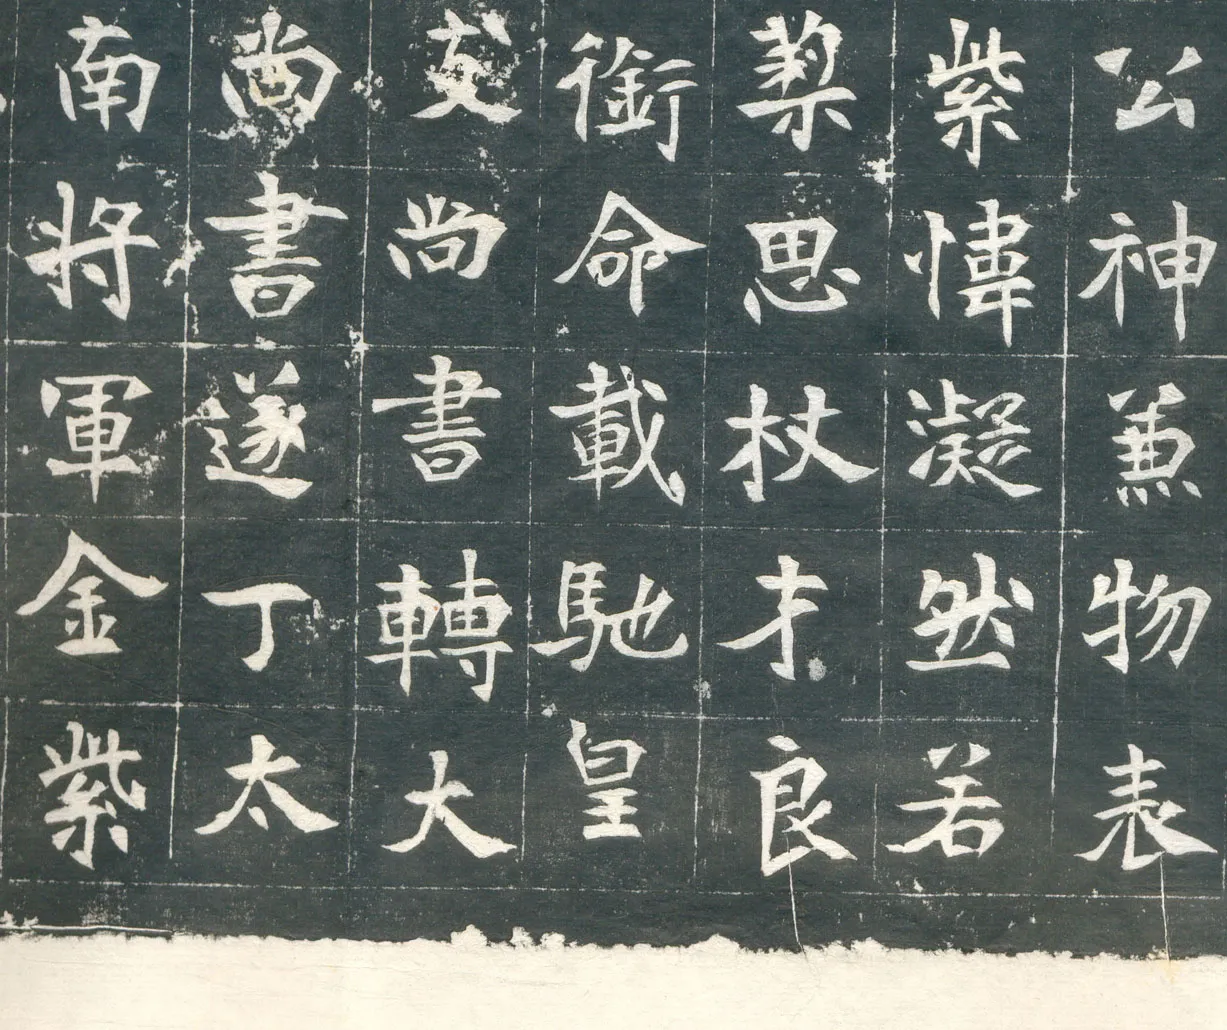 公神兼物表
紫幃凝然若
栔思杖才良
銜命載馳皇
支尚書轉大
尚書遂丁太
南將軍金紫